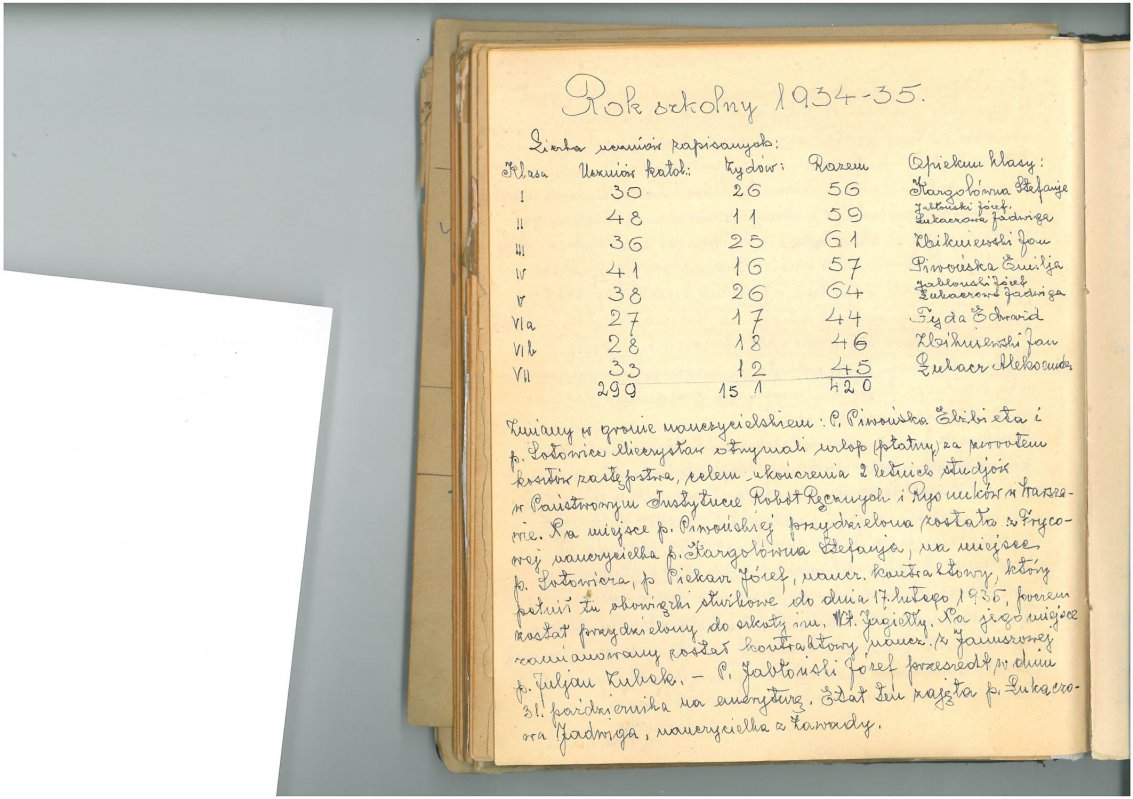 Rok szkolny 1934-35.
Liczba uczniów zapisanych:
Klasa Uczniów katol.: Żydów: Razem Opiekun klasy:
I 30 26 56 Kargolówna Stefanja
II 48 11 59 Jabłoński Józef. Łukaczowa Jadwiga
III 36 25 61 Zbikniewski Jan
IV 41 16 57 Piwońska Emilja
V 38 26 64 Jabłoński Józef Łukaczowa Jadwiga
VIa 27 17 44 Fyda Edward
VIb 28 18 46 Zbikniewski Jan
VII 33 12 45 Łukacz Aleksander
299 151 420
Zmiany w gronie nauczycielskiem: P. Piwońska Elżbieta i
p. Sotowicz Mieczysław otrzymali urlop (płatny) za zwrotem
kosztów zastępstwa, celem ukończenia 2 letnich studjów
w Państwowym Instytucie Robót Ręcznych i Rysunków w Warsza-
wie. Na miejsce p. Piwońskiej przydzielona została z Fryco-
wej nauczycielka p. Kargolówna Stefanja, na miejsce
p. Sotowicza, p. Piekarz Józef, naucz. kontraktowy, który
pełnił tu obowiązki służbowe do dnia 17. lutego 1935, poczem
został przydzielony do szkoły im. Wł. Jagiełły. Na jego miejsce
zamianowany został kontraktowy naucz. z Januszowej
p. Juljan Zubek. — P. Jabłoński Józef przeszedł w dniu
31. października na emeryturę. Etat ten zajęła p. Łukaczo-
wa Jadwiga, nauczycielka z Zawady.